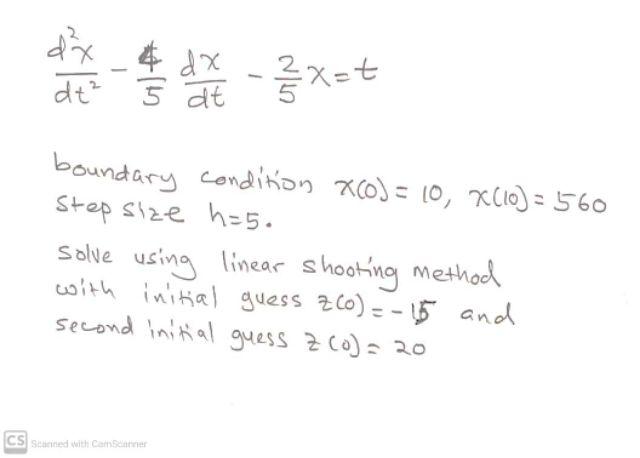 d²x/dt² - 4/5 dx/dt - 2/5 x = t
boundary condition x(0) = 10, x(10) = 560
Step size h=5.
Solve using linear shooting method
with initial guess z(0) = -15 and
second initial guess z(0) = 20
CS Scanned with CamScanner